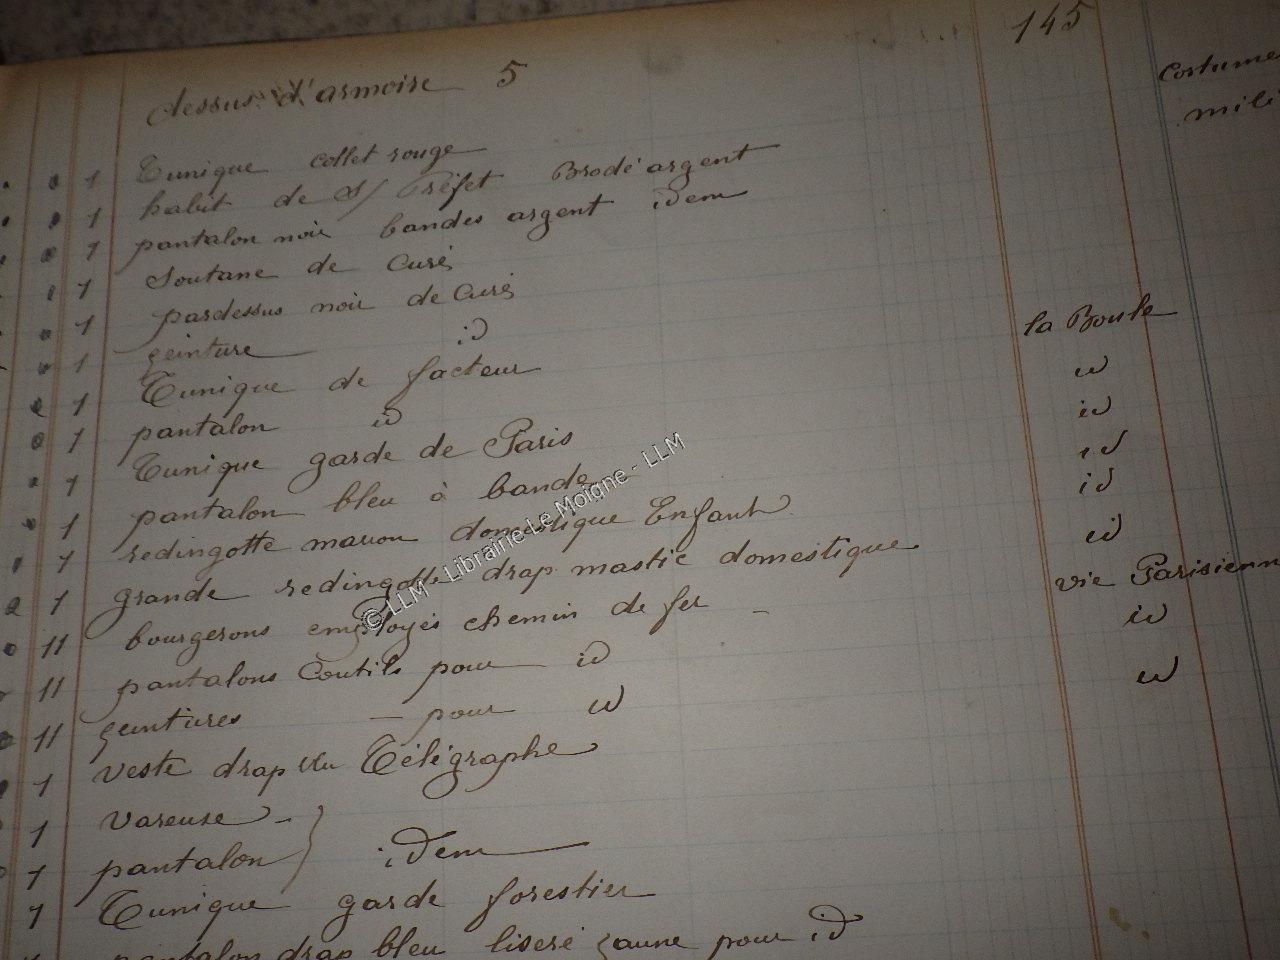 145
dessus d'armoire 5
Costume
mili
1 Tunique collet rouge
1 habit de S/ Préfet Brodé argent
1 pantalon noir bandes argent idem
1 Soutane de Curé
1 pardessus noir de Curé
1 ceinture id
1 Tunique de facteur la Boule
1 pantalon id id
1 Tunique garde de Paris id
1 pantalon bleu à bande id
1 redingotte maron domestique Enfant id
1 grande redingotte drap mastic domestique id
11 bourgerons employés chemin de fer - vie Parisienn
11 pantalons Coutils pour id id
11 ceintures - pour id id
1 veste drap bleu Télégraphe
1 vareuse -
1 pantalon } idem
1 Tunique garde forestier
1 pantalon drap bleu liseré jaune pour id
© LLM - Librairie Le Moigne - LLM